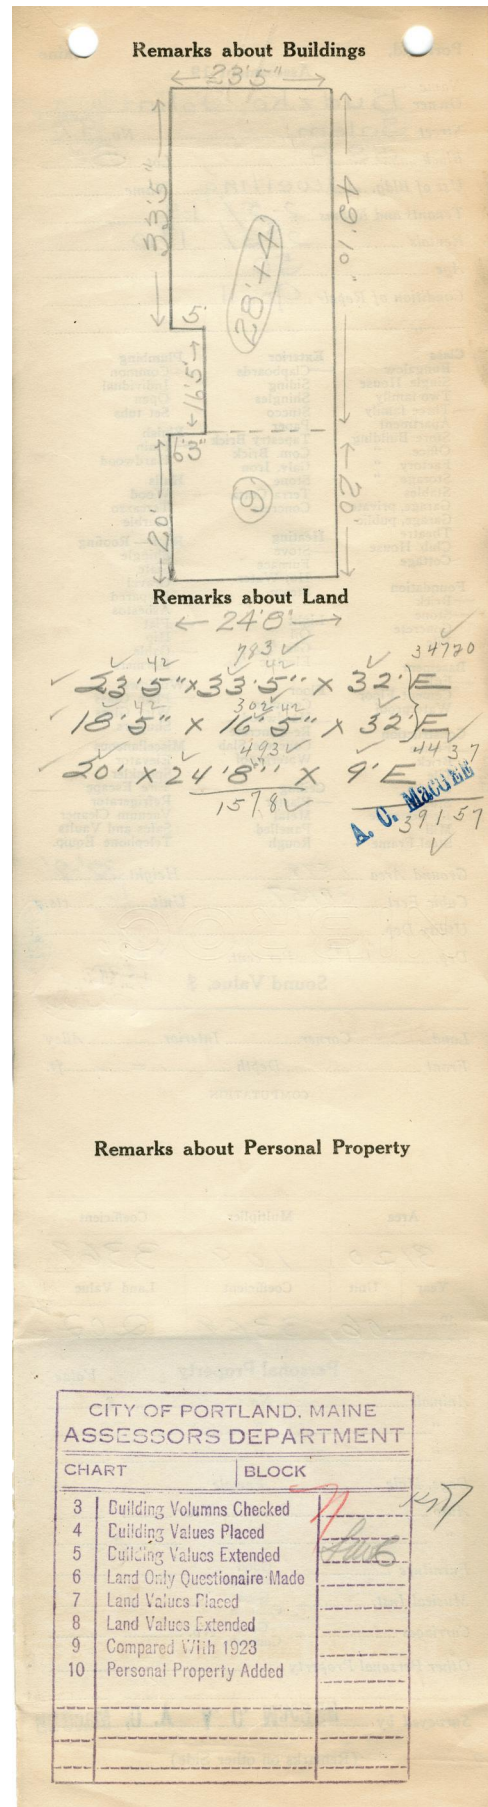 Remarks about Buildings
23'5"
33'5"
49'10"
28'+4
5'
16'5"
6'3"
9
20'
20
Remarks about Land
24'8"
783 ✓ 34720
✓ 23'5" x 33'5" x 32' } E
42 42
302 ✓ 42
✓ 18'5" x 16'5" x 32' } E
493 ✓ 4437
✓ 20' x 24'8" x 9' E
1578 ✓ 39157
A. C. MacGEE
Remarks about Personal Property
CITY OF PORTLAND, MAINE
ASSESSORS DEPARTMENT
CHART BLOCK
3 Building Volumns Checked
4 Building Values Placed
5 Building Values Extended
6 Land Only Questionaire Made
7 Land Values Placed
8 Land Values Extended
9 Compared With 1923
10 Personal Property Added